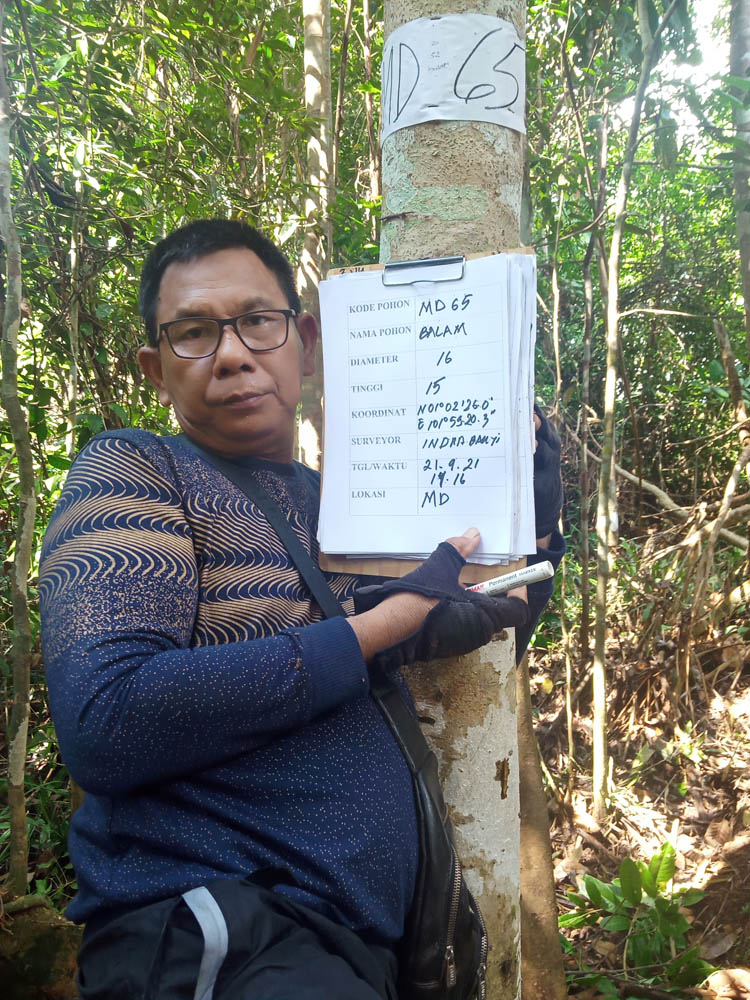 MD 65
KODE POHON MD 65
NAMA POHON BALAM
DIAMETER 16
TINGGI 15
KOORDINAT N 01° 02' 26.0"
E 101° 55.20.3"
SURVEYOR INDRA
TGL/WAKTU 21.9.21
14.16
LOKASI MD
Permanent MARKER